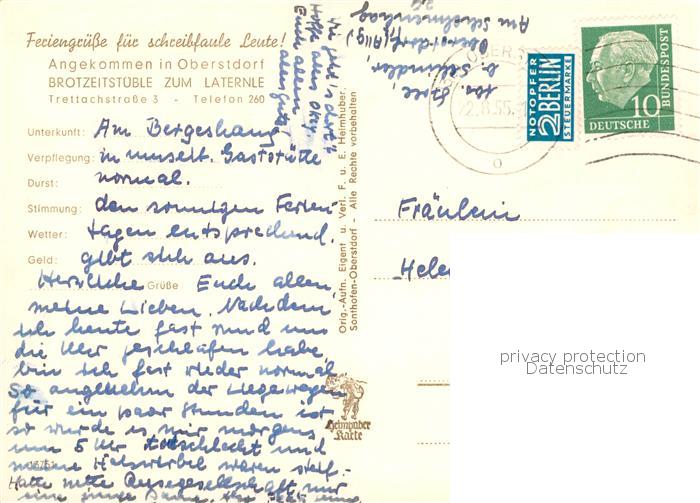 Feriengrüße für schreibfaule Leute!
Angekommen in Oberstdorf
BROTZEITSTÜBLE ZUM LATERNLE
Trettachstraße 3 - Telefon 260
Unterkunft: Am Bergeshang
Verpflegung: in umseit. Gaststätte
Durst: normal.
Stimmung: den sonnigen Ferien-
Wetter: tagen entsprechend.
Geld: gibt sich aus.
Herzliche Grüße Euch allen,
meine Lieben. Nachdem
ich heute fast rund um
die Uhr geschlafen habe,
bin ich fast wieder normal.
So angenehm der Liegewagen
für ein paar Stunden ist
so wurde es mir morgens
um 5 Uhr schlecht und
meine Halswirbel waren steif.
Hatte nette Reisegesellschaft nur
eine junge Dame,
16751
Wie geht's dort?
Hoffe alles okay.
Euch allen
alles Gute!
Orig.-Aufn. Eigent u. Verl. F. u. E. Heimhuber,
Sonthofen-Oberstdorf - Alle Rechte vorbehalten
Heimhuber
Karte
Oberstdorf (Allg)
Am
22.8.55.
NOTOPFER
2 BERLIN
STEUERMARKE
10
DEUTSCHE
BUNDESPOST
Fräulein
Hele
privacy protection
Datenschutz